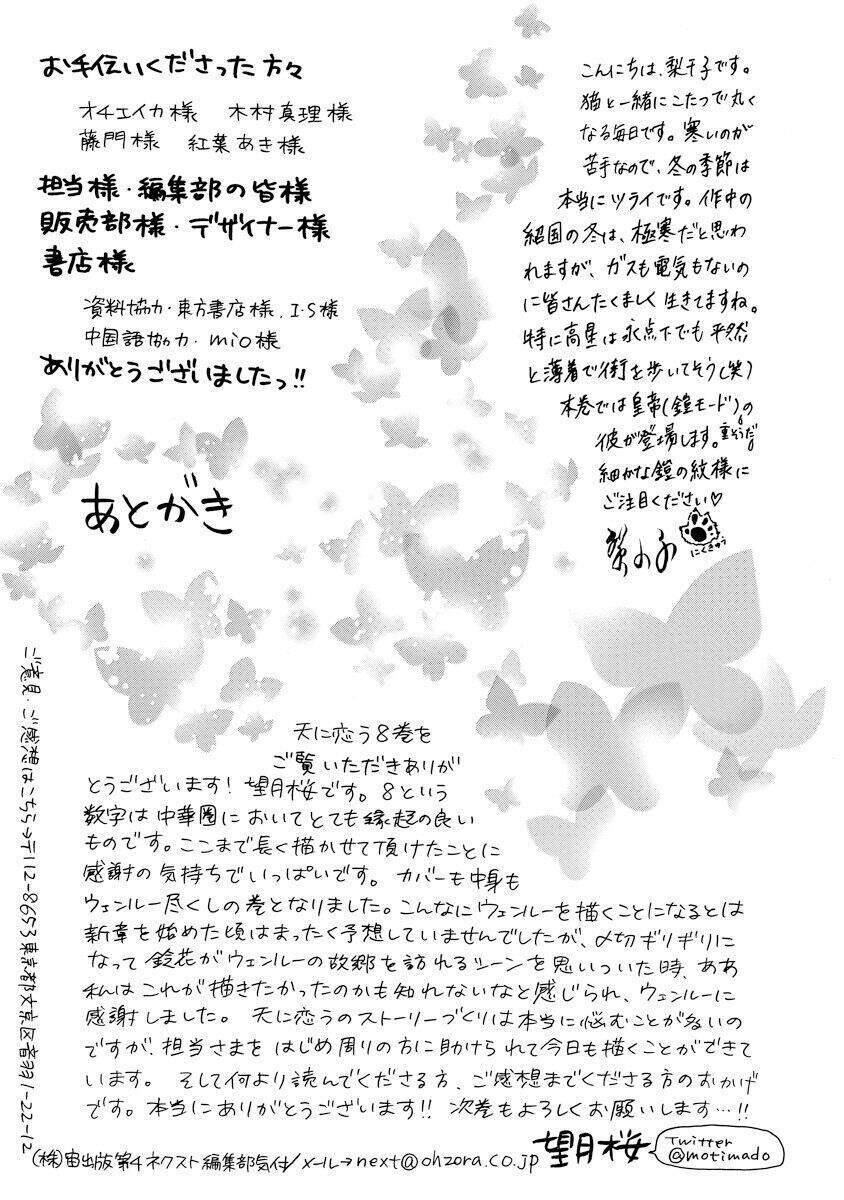 お手伝いくださった方々
オチエイカ様 木村真理様
藤門様 紅葉あき様
担当様・編集部の皆様
販売部様・デザイナー様
書店様
資料協力・東方書店様、I・S様
中国語協力・mio様
ありがとうございましたっ!!
こんにちは、梨千子です。
猫と一緒にこたつで丸く
なる毎日です。寒いのが
苦手なので、冬の季節は
本当にツライです。作中の
紹国の冬は、極寒だと思わ
れますが、ガスも電気もないの
に皆さんたくましく生きてますね。
特に高星は氷点下でも平然
と薄着で街を歩いてそう(笑)
本巻では皇帝(鎧モード)の
彼が登場します。重そうだ
細かな鎧の紋様に
ご注目ください♡
にくきゅう
あとがき
天に恋う8巻を
ご覧いただきありが
とうございます!望月桜です。8という
数字は中華圏においてとても縁起の良い
ものです。ここまで長く描かせて頂けたことに
感謝の気持ちでいっぱいです。カバーも中身も
ウェンルー尽くしの巻となりました。こんなにウェンルーを描くことになるとは
新章を始めた頃はまったく予想していませんでしたが、〆切ギリギリに
なって鏡花がウェンルーの故郷を訪れるシーンを思いついた時、ああ
私はこれが描きたかったのかも知れないなと感じられ、ウェンルーに
感謝しました。天に恋うのストーリーづくりは本当に悩むことが多いの
ですが、担当さまをはじめ周りの方に助けられて今日も描くことができて
います。そして何より読んでくださる方、ご感想までくださる方のおかげ
です。本当にありがとうございます!!次巻もよろしくお願いします…!!
望月桜
Twitter
@motimado
ご意見・ご感想はこちら→〒112-8653東京都文京区音羽1-22-12
(株)宙出版第4ネクスト編集部気付/メール→next@ohzora.co.jp